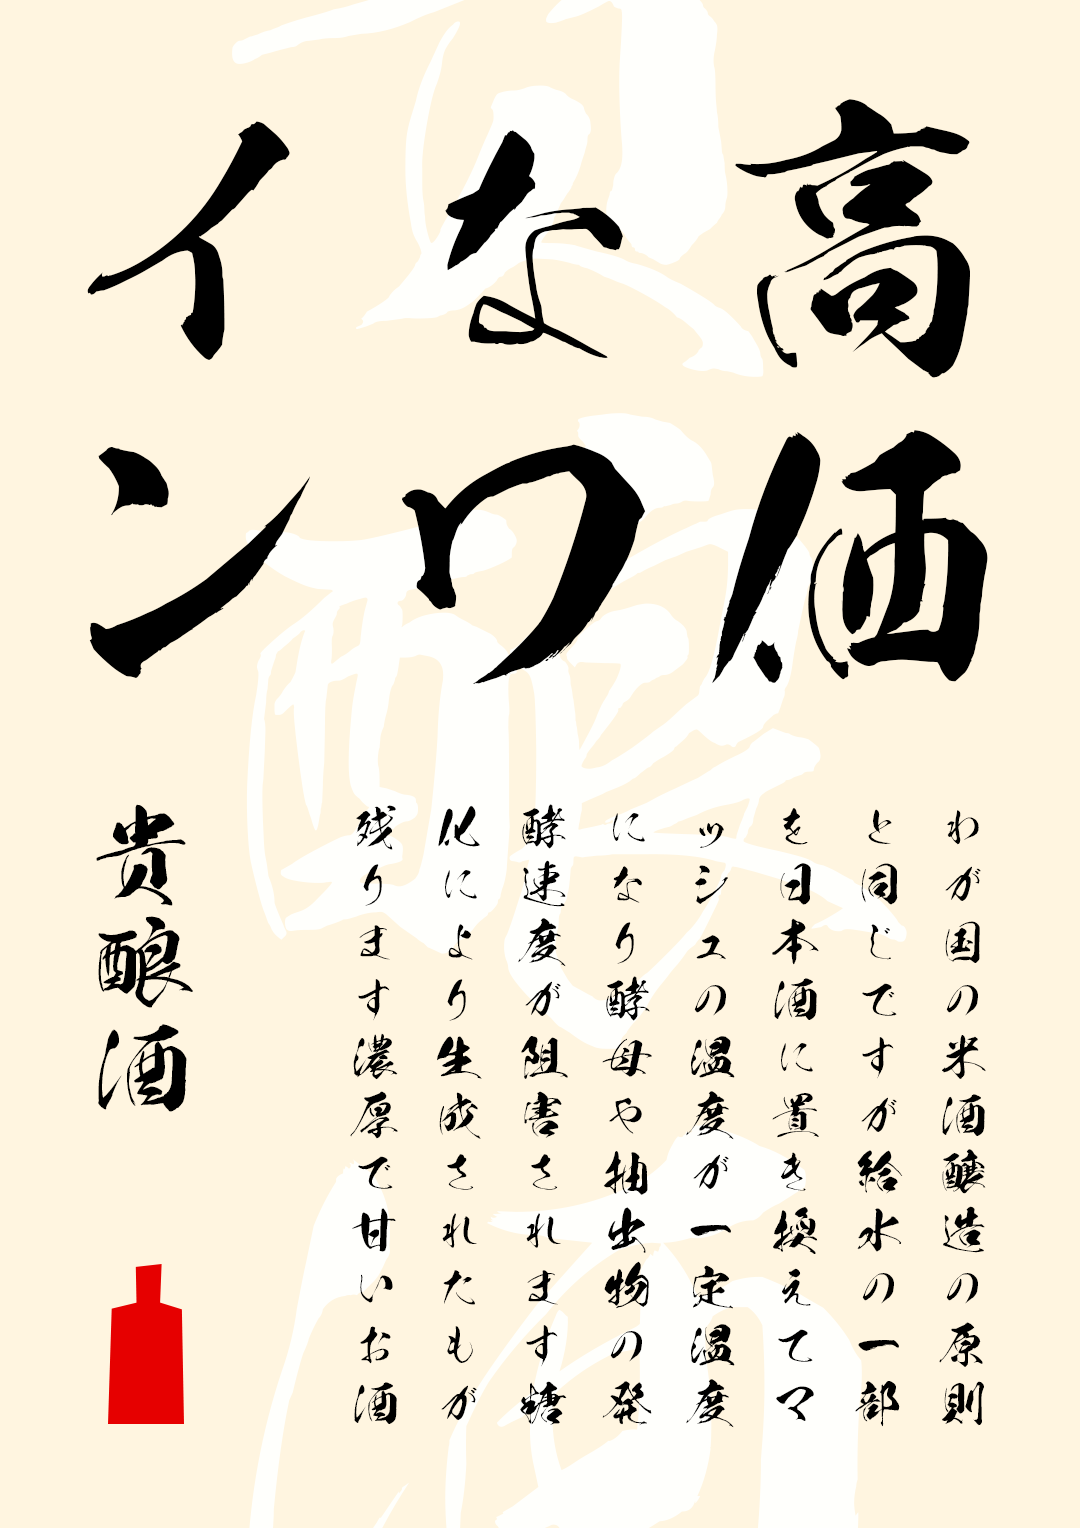 高価
なワ
イン
わが国の米酒醸造の原則
と同じですが給水の一部
を日本酒に置き換えてマ
ッシュの温度が一定温度
になり酵母や抽出物の発
酵速度が阻害されます糖
化により生成されたもが
残ります濃厚で甘いお酒
貴醸酒